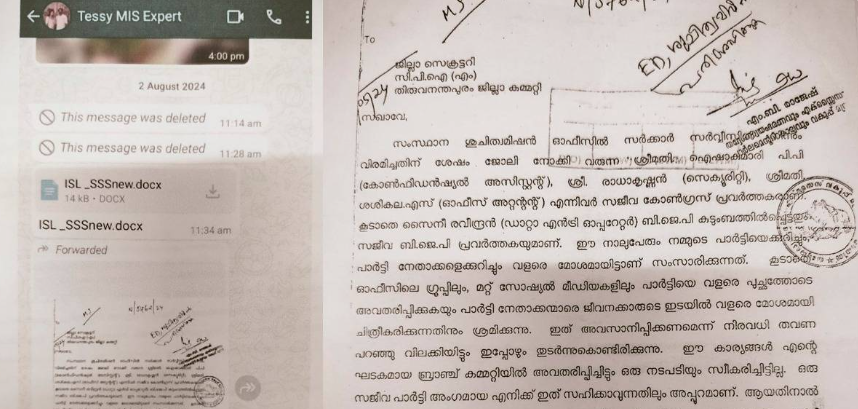 Tessy MIS Expert
4:00 pm
2 August 2024
This message was deleted
11:14 am
This message was deleted
11:28 am
ISL _SSSnew.docx
14 kB • DOCX
ISL _SSSnew.docx
11:34 am
Forwarded
To
ജില്ലാ സെക്രട്ടറി
സി.പി.ഐ (എം)
തിരുവനന്തപുരം ജില്ലാ കമ്മറ്റി
സഖാവേ,
എം.ബി. രാജേഷ്
സംസ്ഥാന ശുചിത്വമിഷൻ ഓഫീസിൽ സർക്കാർ
വിരമിച്ചതിന് ശേഷം ജോലി നോക്കി വരുന്ന ശ്രീമതി. ഐഷാകുമാരി പി.പി
(കോൺഫിഡൻഷ്യൽ അസിസ്റ്റന്റ്), ശ്രീ. രാധാകൃഷ്ണൻ (സെക്യൂരിറ്റി), ശ്രീമതി
ശശികല.എസ് (ഓഫീസ് അറ്റന്റന്റ്) എന്നിവർ സജീവ കോൺഗ്രസ് പ്രവർത്തകരാണ്.
കൂടാതെ സൈനീ രവീന്ദ്രൻ (ഡാറ്റാ എൻട്രി ഓപ്പറേറ്റർ) ബി.ജെ.പി
സജീവ ബി.ജെ.പി പ്രവർത്തകയുമാണ്. ഈ നാലുപേരും നമ്മുടെ
പാർട്ടി നേതാക്കളെക്കുറിച്ചും വളരെ മോശമായിട്ടാണ് സംസാരിക്കുന്നത്. കൂടാതെ
ഓഫീസിലെ ഗ്രൂപ്പിലും, മറ്റ് സോഷ്യൽ മീഡിയകളിലും പാർട്ടിയെ വളരെ പുച്ഛത്തോടെ
അവതരിപ്പിക്കുകയും പാർട്ടി നേതാക്കന്മാരെ ജീവനക്കാരുടെ ഇടയിൽ വളരെ മോശമായി
ചിത്രീകരിക്കുന്നതിനും ശ്രമിക്കുന്നു. ഇത് അവസാനിപ്പിക്കണമെന്ന് നിരവധി തവണ
പറഞ്ഞു വിലക്കിയിട്ടും ഇപ്പോഴും തുടർന്നുകൊണ്ടിരിക്കുന്നു. ഈ കാര്യങ്ങൾ എന്റെ
ഘടകമായ ബ്രാഞ്ച് കമ്മറ്റിയിൽ അവതരിപ്പിച്ചിട്ടും ഒരു നടപടിയും സ്വീകരിച്ചിട്ടില്ല. ഒരു
സജീവ പാർട്ടി അംഗമായ എനിക്ക് ഇത് സഹിക്കാവുന്നതിലും അപ്പുറമാണ്. ആയതിനാൽ